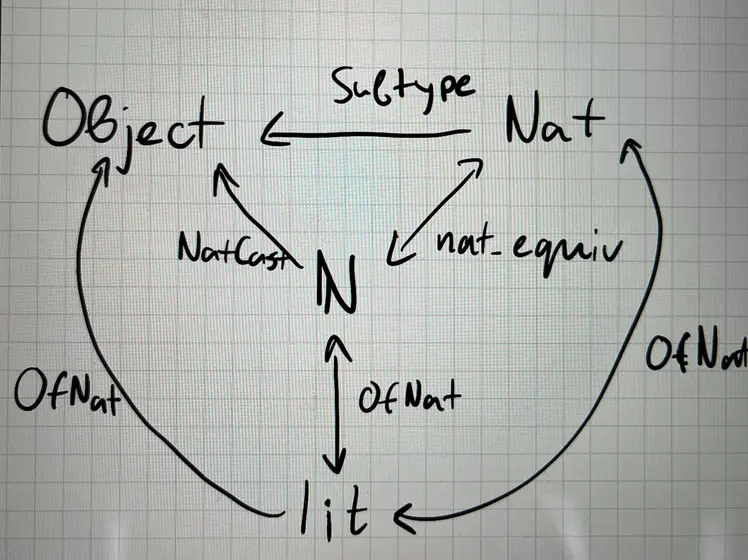 Subtype
Object Nat
NatCast nat_equiv
ℕ
OfNat OfNat OfNat
lit